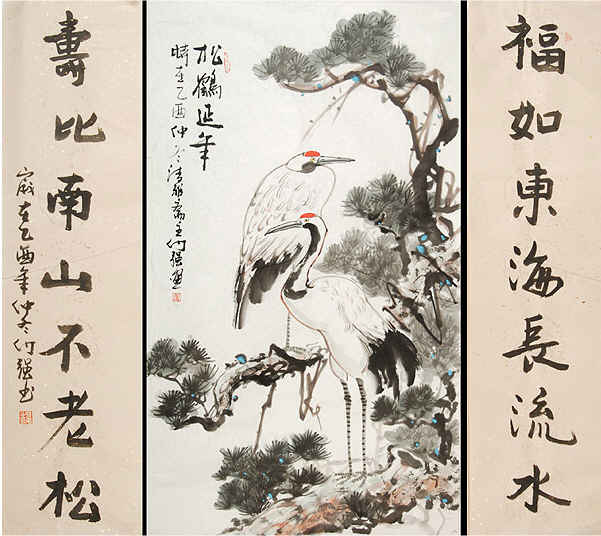 福如東海長流水
松鶴延年
時在乙酉仲冬清雅齋主何强畫
壽比南山不老松
歲在乙酉年仲冬何强书